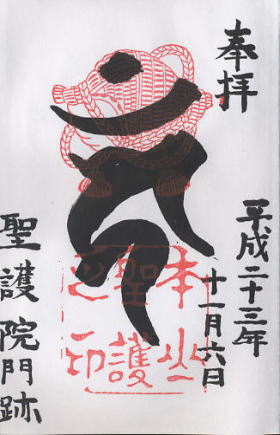 奉拝
平成二十三年
十一月六日
本山
聖護
之印
聖護院門跡